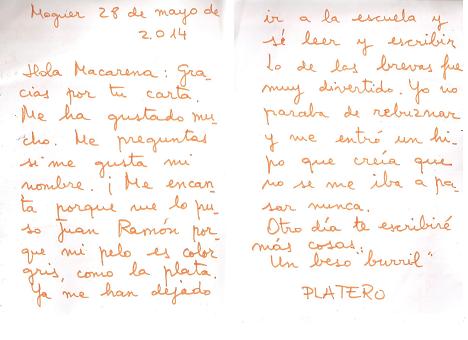 Moguer 28 de mayo de
2.014
Hola Macarena: Gra-
cias por tu carta.
Me ha gustado mu-
cho. Me preguntas
si me gusta mi
nombre. ¡Me encan-
ta porque me lo pu-
so Juan Ramón por-
que mi pelo es color
gris, como la plata.
Ya me han dejado
ir a la escuela y
sé leer y escribir
Lo de las brevas fue
muy divertido. Yo no
paraba de rebuznar
y me entró un hi-
po que creía que
no se me iba a pa-
sar nunca.
Otro día te escribiré
más cosas.
Un beso "burril"
PLATERO